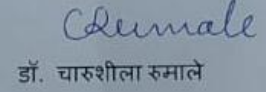 CRumale
डॉ. चारुशीला रुमाले